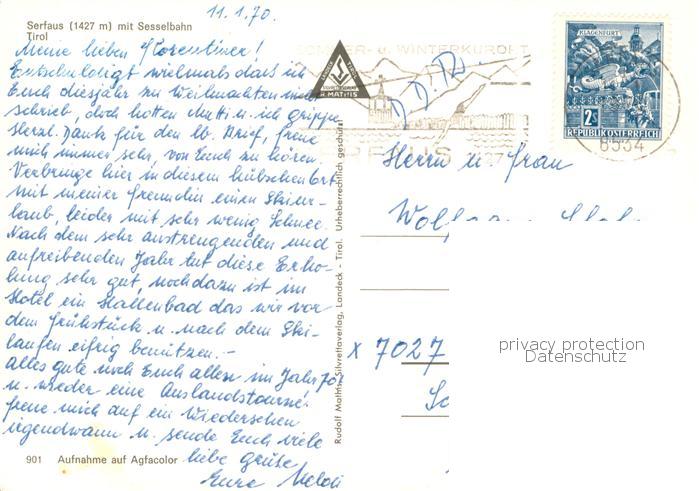 11.1.70.
Serfaus (1427 m) mit Sesselbahn
Tirol
Meine lieben
Entschuldigt vielmals dass ich
Euch diesjahr zu Weihnachten nicht
schrieb, doch hatten Mutti u. ich Grippe
Herzl. Dank für den lb. Brief, freue
mich immer sehr, von Euch zu hören.
Verbringe hier in diesem hübschen Ort
mit meiner Freundin einen Skiur-
laub, leider mit sehr wenig Schnee.
Nach dem sehr anstrengenden und
aufreibenden Jahr tut diese Erho-
lung sehr gut, noch dazu ist im
Hotel ein Hallenbad das wir vor
dem Frühstück u. nach dem Ski-
laufen eifrig benützen.-
Alles gute noch Euch allen im Jahr 70
u. wieder eine Auslandstournee!
freue mich auf ein Wiedersehen
irgendwann u. sende Euch viele
liebe Grüße
Eure
901 Aufnahme auf Agfacolor
Rudolf Mathis, Silvrettaverlag, Landeck - Tirol. Urheberrechtlich geschützt
R. MATHIS
SOMMER- u. WINTERKURORT
KLAGENFURT
2S
REPUBLIK ÖSTERREICH
6534
Herrn u. Frau
x 7027
privacy protection
Datenschutz